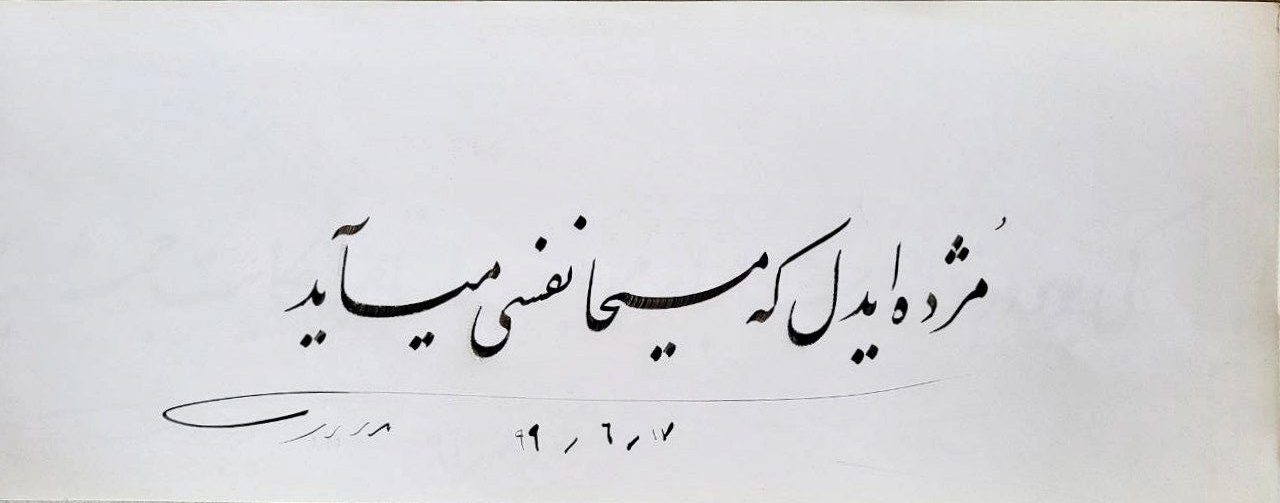 مُژده ایدل که مسیحا نفسی میآید
۹۹ / ۶ / ۱۷